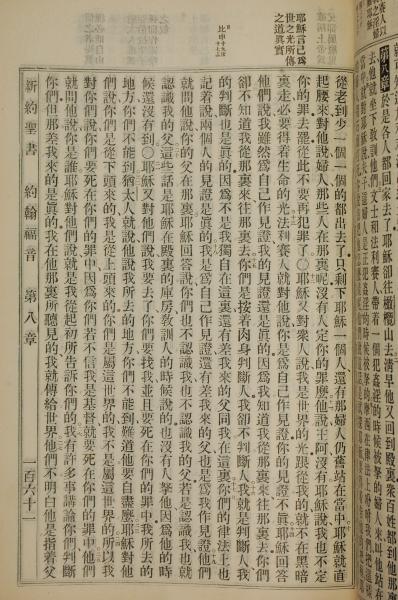 第八章於是各人都回家去了耶穌卻往橄欖山去清早他又回到殿裏衆百姓都到他那裏
去他就坐下教訓他們文士和法利賽人帶着一個犯姦淫的時候被拏的婦人來叫他站在
耶穌言己爲
世之光所傳
之道眞實
從老到少一個一個的都出去了只剩下耶穌一個人還有那婦人仍舊站在當中耶穌就直
起腰來對他說婦人那些人在那裏呢沒有人定你的罪麼他說主阿沒有耶穌說我也不定
你的罪去罷從此不要再犯罪了○耶穌又對衆人說我是世界的光跟從我的就不在黑暗
裏走必要得着生命的光法利賽人就對他說你是爲自己作見證你的見證不眞耶穌回答
他們說我雖然爲自己作見證我的見證還是眞的因爲我知道我從那裏來往那裏去你們
卻不知道我從那裏來往那裏去你們是按着肉身判斷人我卻不判斷人我就是判斷人我
的判斷也是眞的因爲不是我獨自在這裏還有差我來的父同我在這裏你們的律法上也
記着說兩個人的見證是眞的我是爲自己作見證還有差我來的父也是爲我作見證他們
就問他說你的父在那裏耶穌回答說你們也不認識我也不認識我的父若是認識我也就
認識我的父這些話是耶穌在殿裏的庫房教訓人的時候說的也沒有人拏他因爲他的時
候還沒有到○耶穌又對他們說我要去了你們要找我並且要死在你們的罪中我所去的
地方你們不能到猶太人就說他說我所去的地方你們不能到難道他要自盡麼耶穌對他
們說你們是從下頭來的我是從上頭來的你們是屬這世界的我不是屬這世界的所以我
對你們說你們要死在你們的罪中因爲你們若不信我是基督就要死在你們的罪中他們
就問他說你是誰耶穌對他們說就是我從起初所告訴你們的我有許多事講論你們判斷
你們但那差我來的是眞的我在他那裏所聽見的我就傳給世界他們不明白他是指着父
新約聖書 約翰福音 第八章 百六十